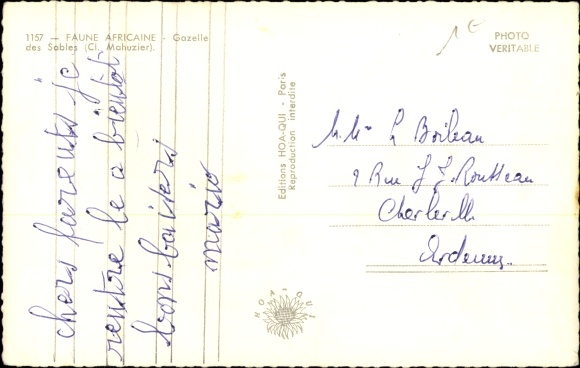 1157 — FAUNE AFRICAINE - Gazelle
des Sables (Cl. Mahuzier).
1€
PHOTO
VERITABLE
chers parents je
rentre le a bientôt
bons baisers
mario
Editions HOA-QUI - Paris
Reproduction interdite
HOA-QUI
M. Mme Boileau
9 Rue J J. Rousseau
Charleville
Ardennes